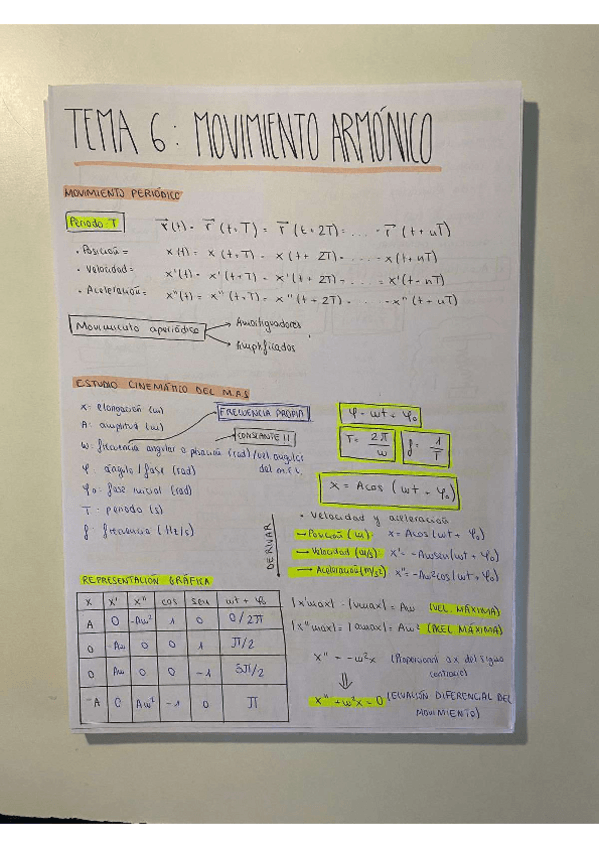 TEMA 6: MOVIMIENTO ARMÓNICO
MOVIMIENTO PERIÓDICO
Periodo T
r⃗(t) = r⃗(t+T) = r⃗(t+2T) = ... = r⃗(t+nT)
· Posición = x(t) = x(t+T) = x(t+2T) = ... = x(t+nT)
· Velocidad = x'(t) = x'(t+T) = x'(t+2T) = ... = x'(t+nT)
· Aceleración = x''(t) = x''(t+T) = x''(t+2T) = ... = x''(t+nT)
Movimiento aperiódico
→ Amortiguadores
→ Amplificados
ESTUDIO CINEMÁTICO DEL M.A.S
x: elongación (m)
A: amplitud (m)
FRECUENCIA PROPIA
CONSTANTE!!
w: frecuencia angular o pulsación (rad)/vel. angular del m.c.u.
φ: ángulo/fase (rad)
φ₀: fase inicial (rad)
T: periodo (s)
f: frecuencia (Hz/s)
φ = wt + φ₀
T = 2π/w
f = 1/T
x = Acos (wt + φ₀)
DERIVAR
· Velocidad y aceleración
→ Posición (m): x = Acos(wt + φ₀)
→ Velocidad (m/s): x' = -Awsen(wt + φ₀)
→ Aceleración (m/s²) x'' = -Aw²cos(wt + φ₀)
REPRESENTACIÓN GRÁFICA
x x' x'' cos sen wt + φ₀
A 0 -Aw² 1 0 0/2π
0 -Aw 0 0 1 π/2
0 Aw 0 0 -1 3π/2
-A 0 Aw² -1 0 π
|x'max| = |vmax| = Aw (VEL. MÁXIMA)
|x''max| = |amax| = Aw² (ACEL MÁXIMA)
x'' = -w²x (Proporcional a x del signo contrario)
⇓
x'' + w²x = 0 (ECUACIÓN DIFERENCIAL DEL MOVIMIENTO)